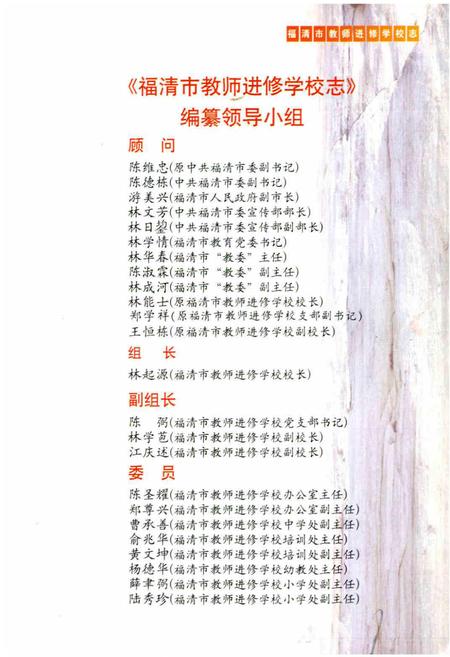 福清市教师进修学校志
《福清市教师进修学校志》
编纂领导小组
顾 问
陈维忠(原中共福清市委副书记)
陈德栋(中共福清市委副书记)
游美兴(福清市人民政府副市长)
林文芳(中共福清市委宣传部部长)
林日鋆(中共福清市委宣传部副部长)
林学情(福清市教育党委书记)
林华春(福清市“教委”主任)
陈淑霖(福清市“教委”副主任)
林成河(福清市“教委”副主任)
林能士(原福清市教师进修学校校长)
郑学祥(原福清市教师进修学校支部副书记)
王恒栋(原福清市教师进修学校副校长)
组 长
林起源(福清市教师进修学校校长)
副组长
陈 弼(福清市教师进修学校党支部书记)
林学芑(福清市教师进修学校副校长)
江庆述(福清市教师进修学校副校长)
委 员
陈圣耀(福清市教师进修学校办公室主任)
郑尊兴(福清市教师进修学校办公室副主任)
曹承善(福清市教师进修学校中学处副主任)
俞兆华(福清市教师进修学校培训处主任)
黄文坤(福清市教师进修学校培训处副主任)
杨德华(福清市教师进修学校幼教处主任)
薛聿弼(福清市教师进修学校小学处副主任)
陆秀珍(福清市教师进修学校小学处副主任)